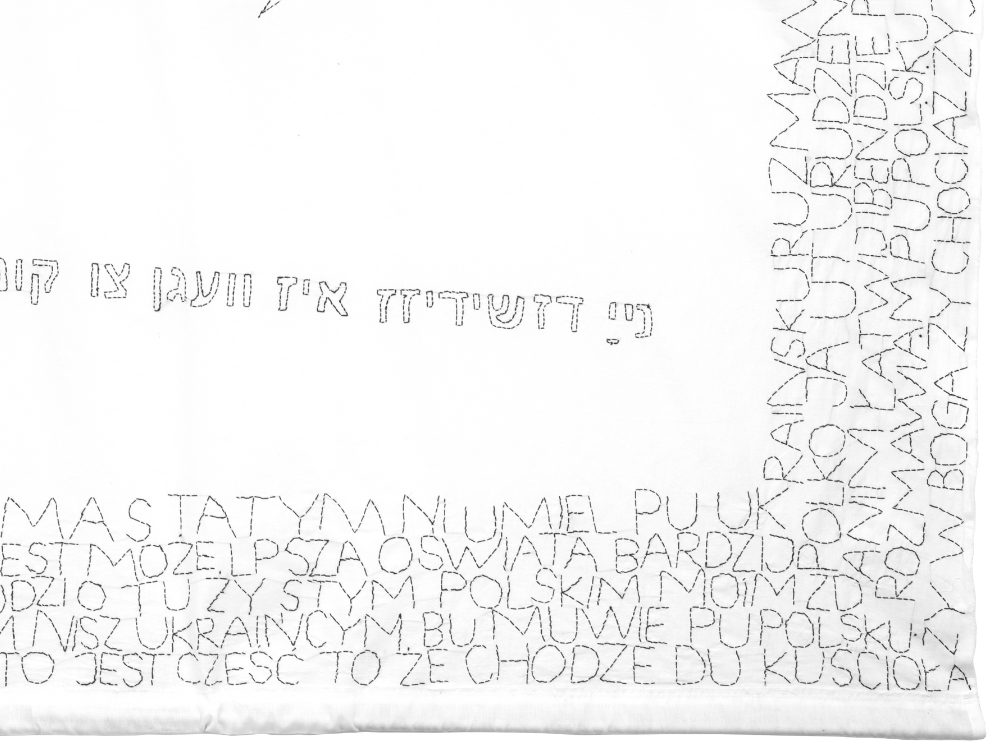 נייַ דזשידיזז איז וועגן צו
MAS TATYM NI UMIEL PU UKRAINSKU RUZMAW
EST MOZE LPSZA OSWIATA BARDZI POLKO JA UT U RUDZEN
ODZI O TU ZY S TYM POLSKIM MOIM ZDANIIM LATWI BENDZIE P
M NISZ UKRAINCYM BU MUWIE PU POLSKU. ROZMAWIAM PU POLSKU
TO JEST CZESC TO ZE CHODZE DU KUSCIOŁA ZY W BOGA ZY CHOCIAZ ZY